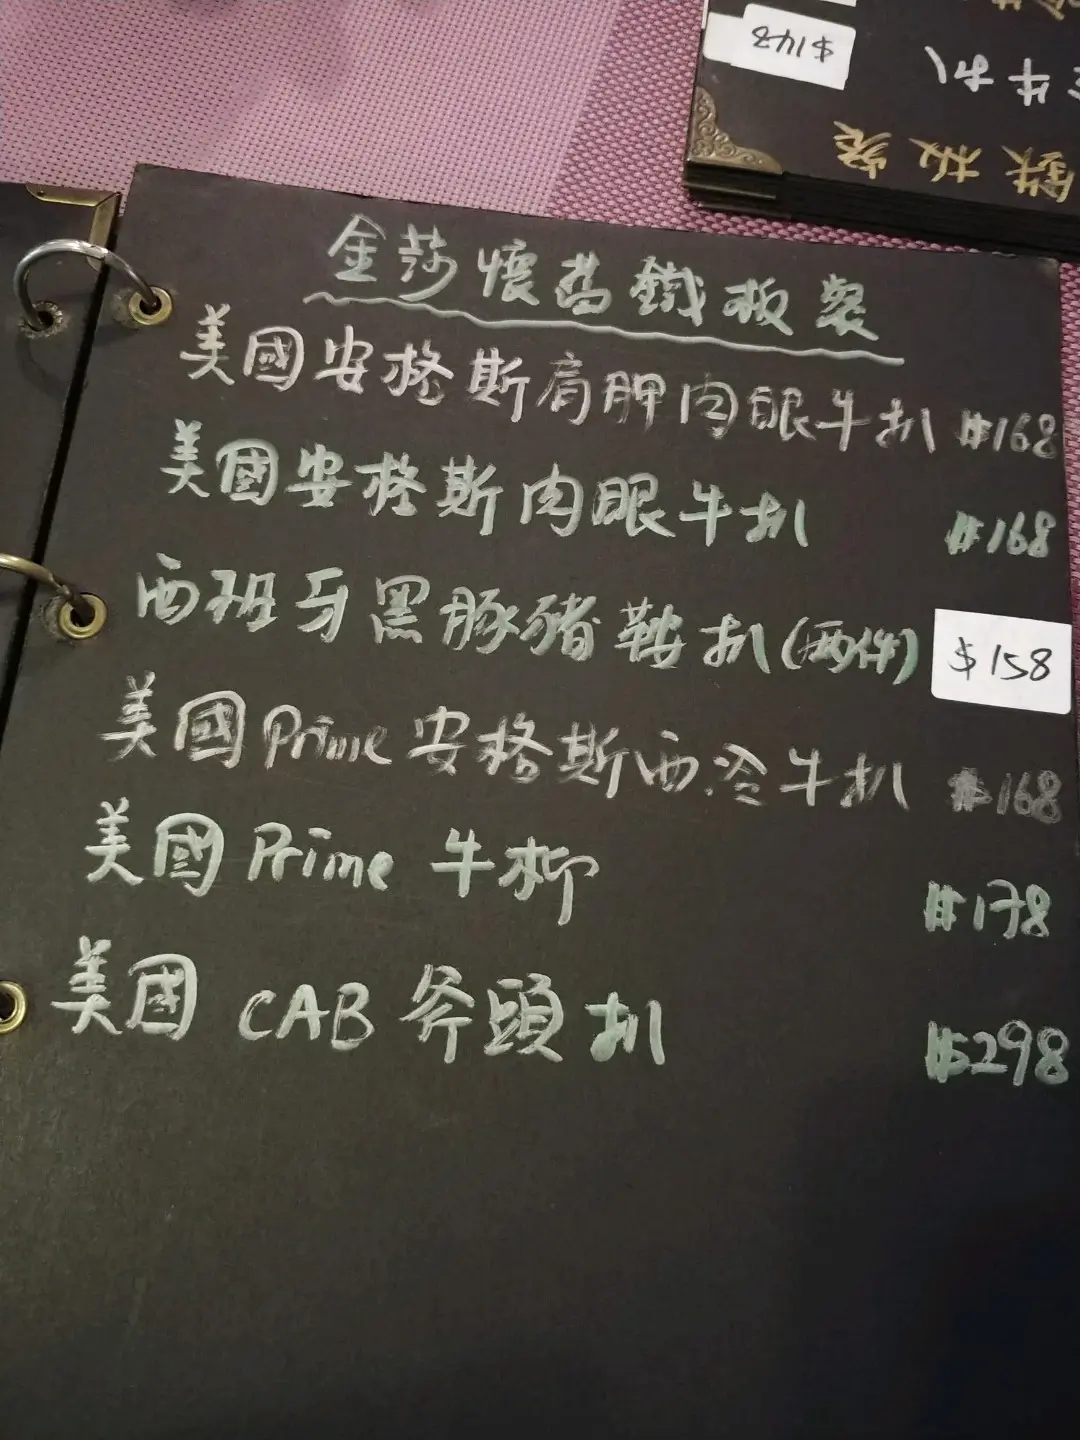 金莎懷舊鐵板餐
美國安格斯肩胛肉眼牛扒 $168
美國安格斯肉眼牛扒 $168
西班牙黑豚豬鞍扒(兩件) $158
美國Prime安格斯西冷牛扒 $168
美國Prime 牛柳 $178
美國 CAB 斧頭扒 $298
鉄板餐
牛扒
$148